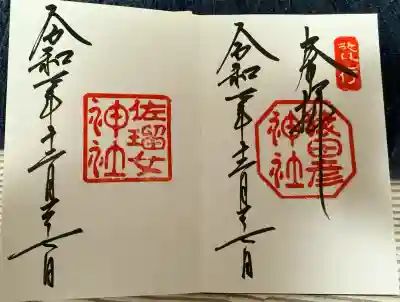 奉拝
猿田彦
神社
令和元年十二月二十一日
佐瑠女
神社
令和元年十二月二十一日